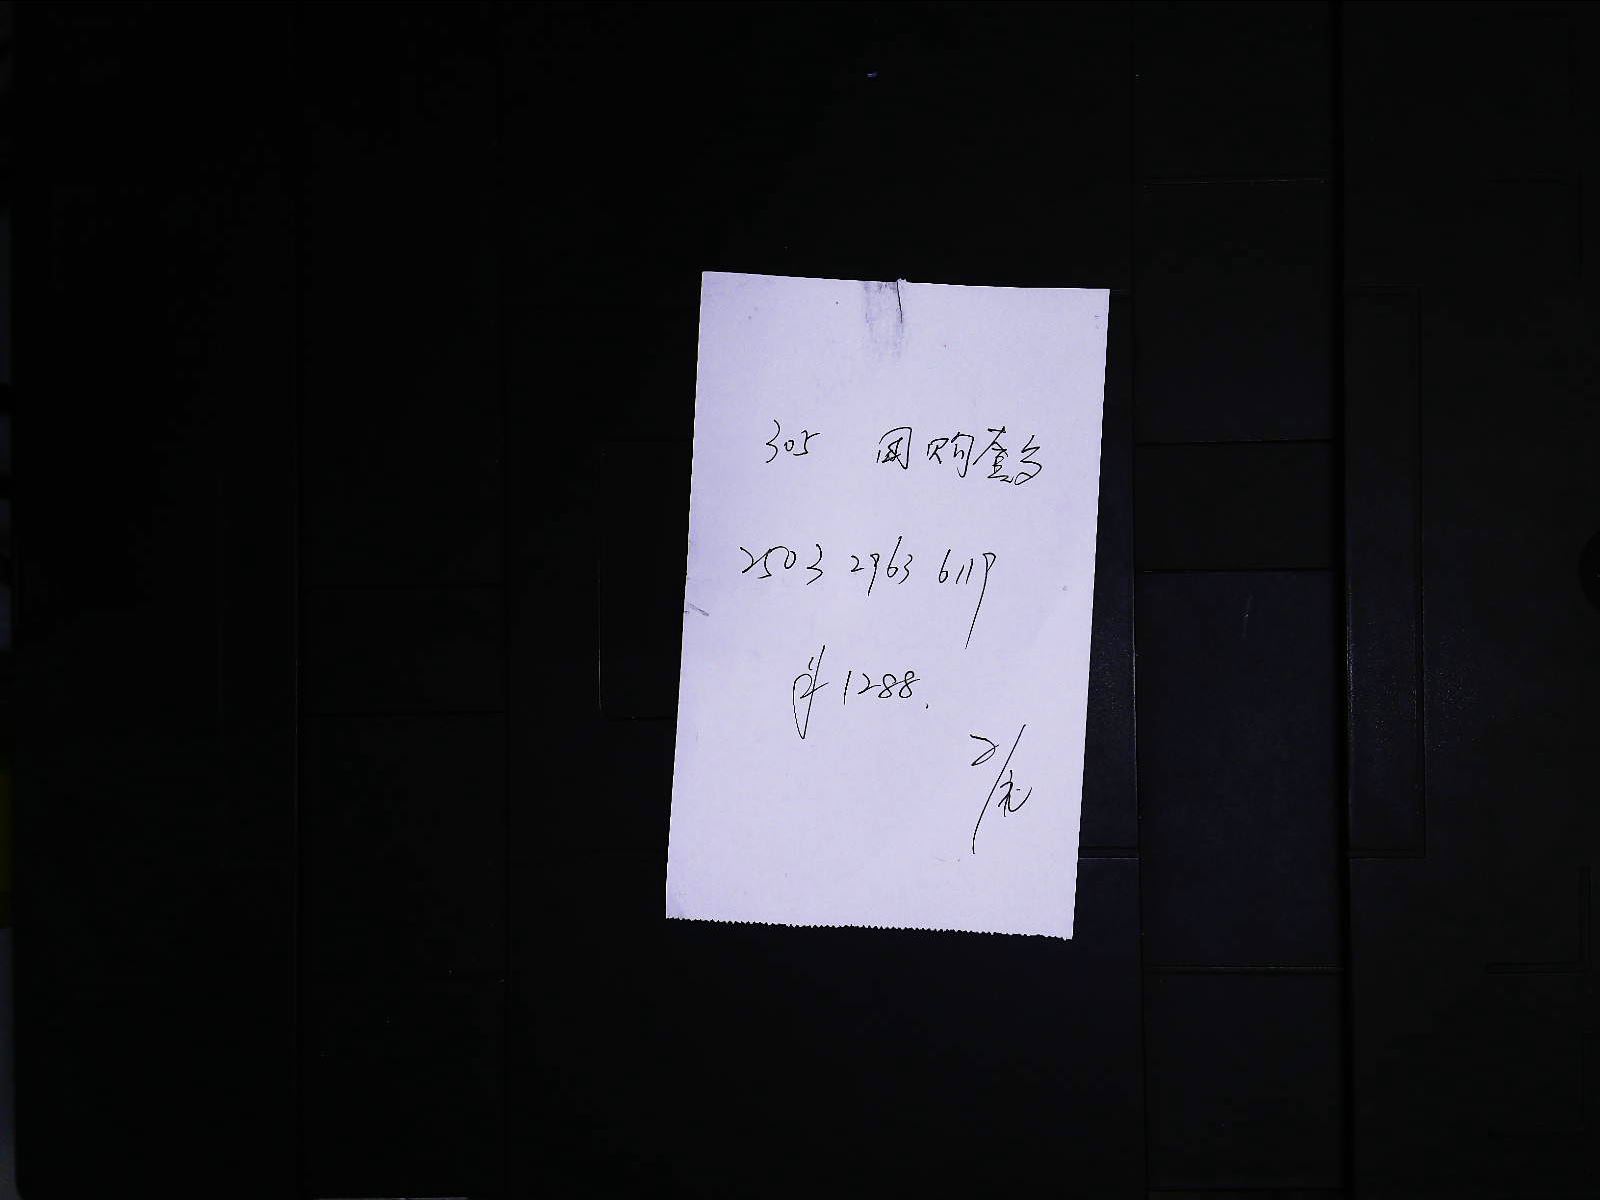 305 团购套多
2503 2963 6119
1288.